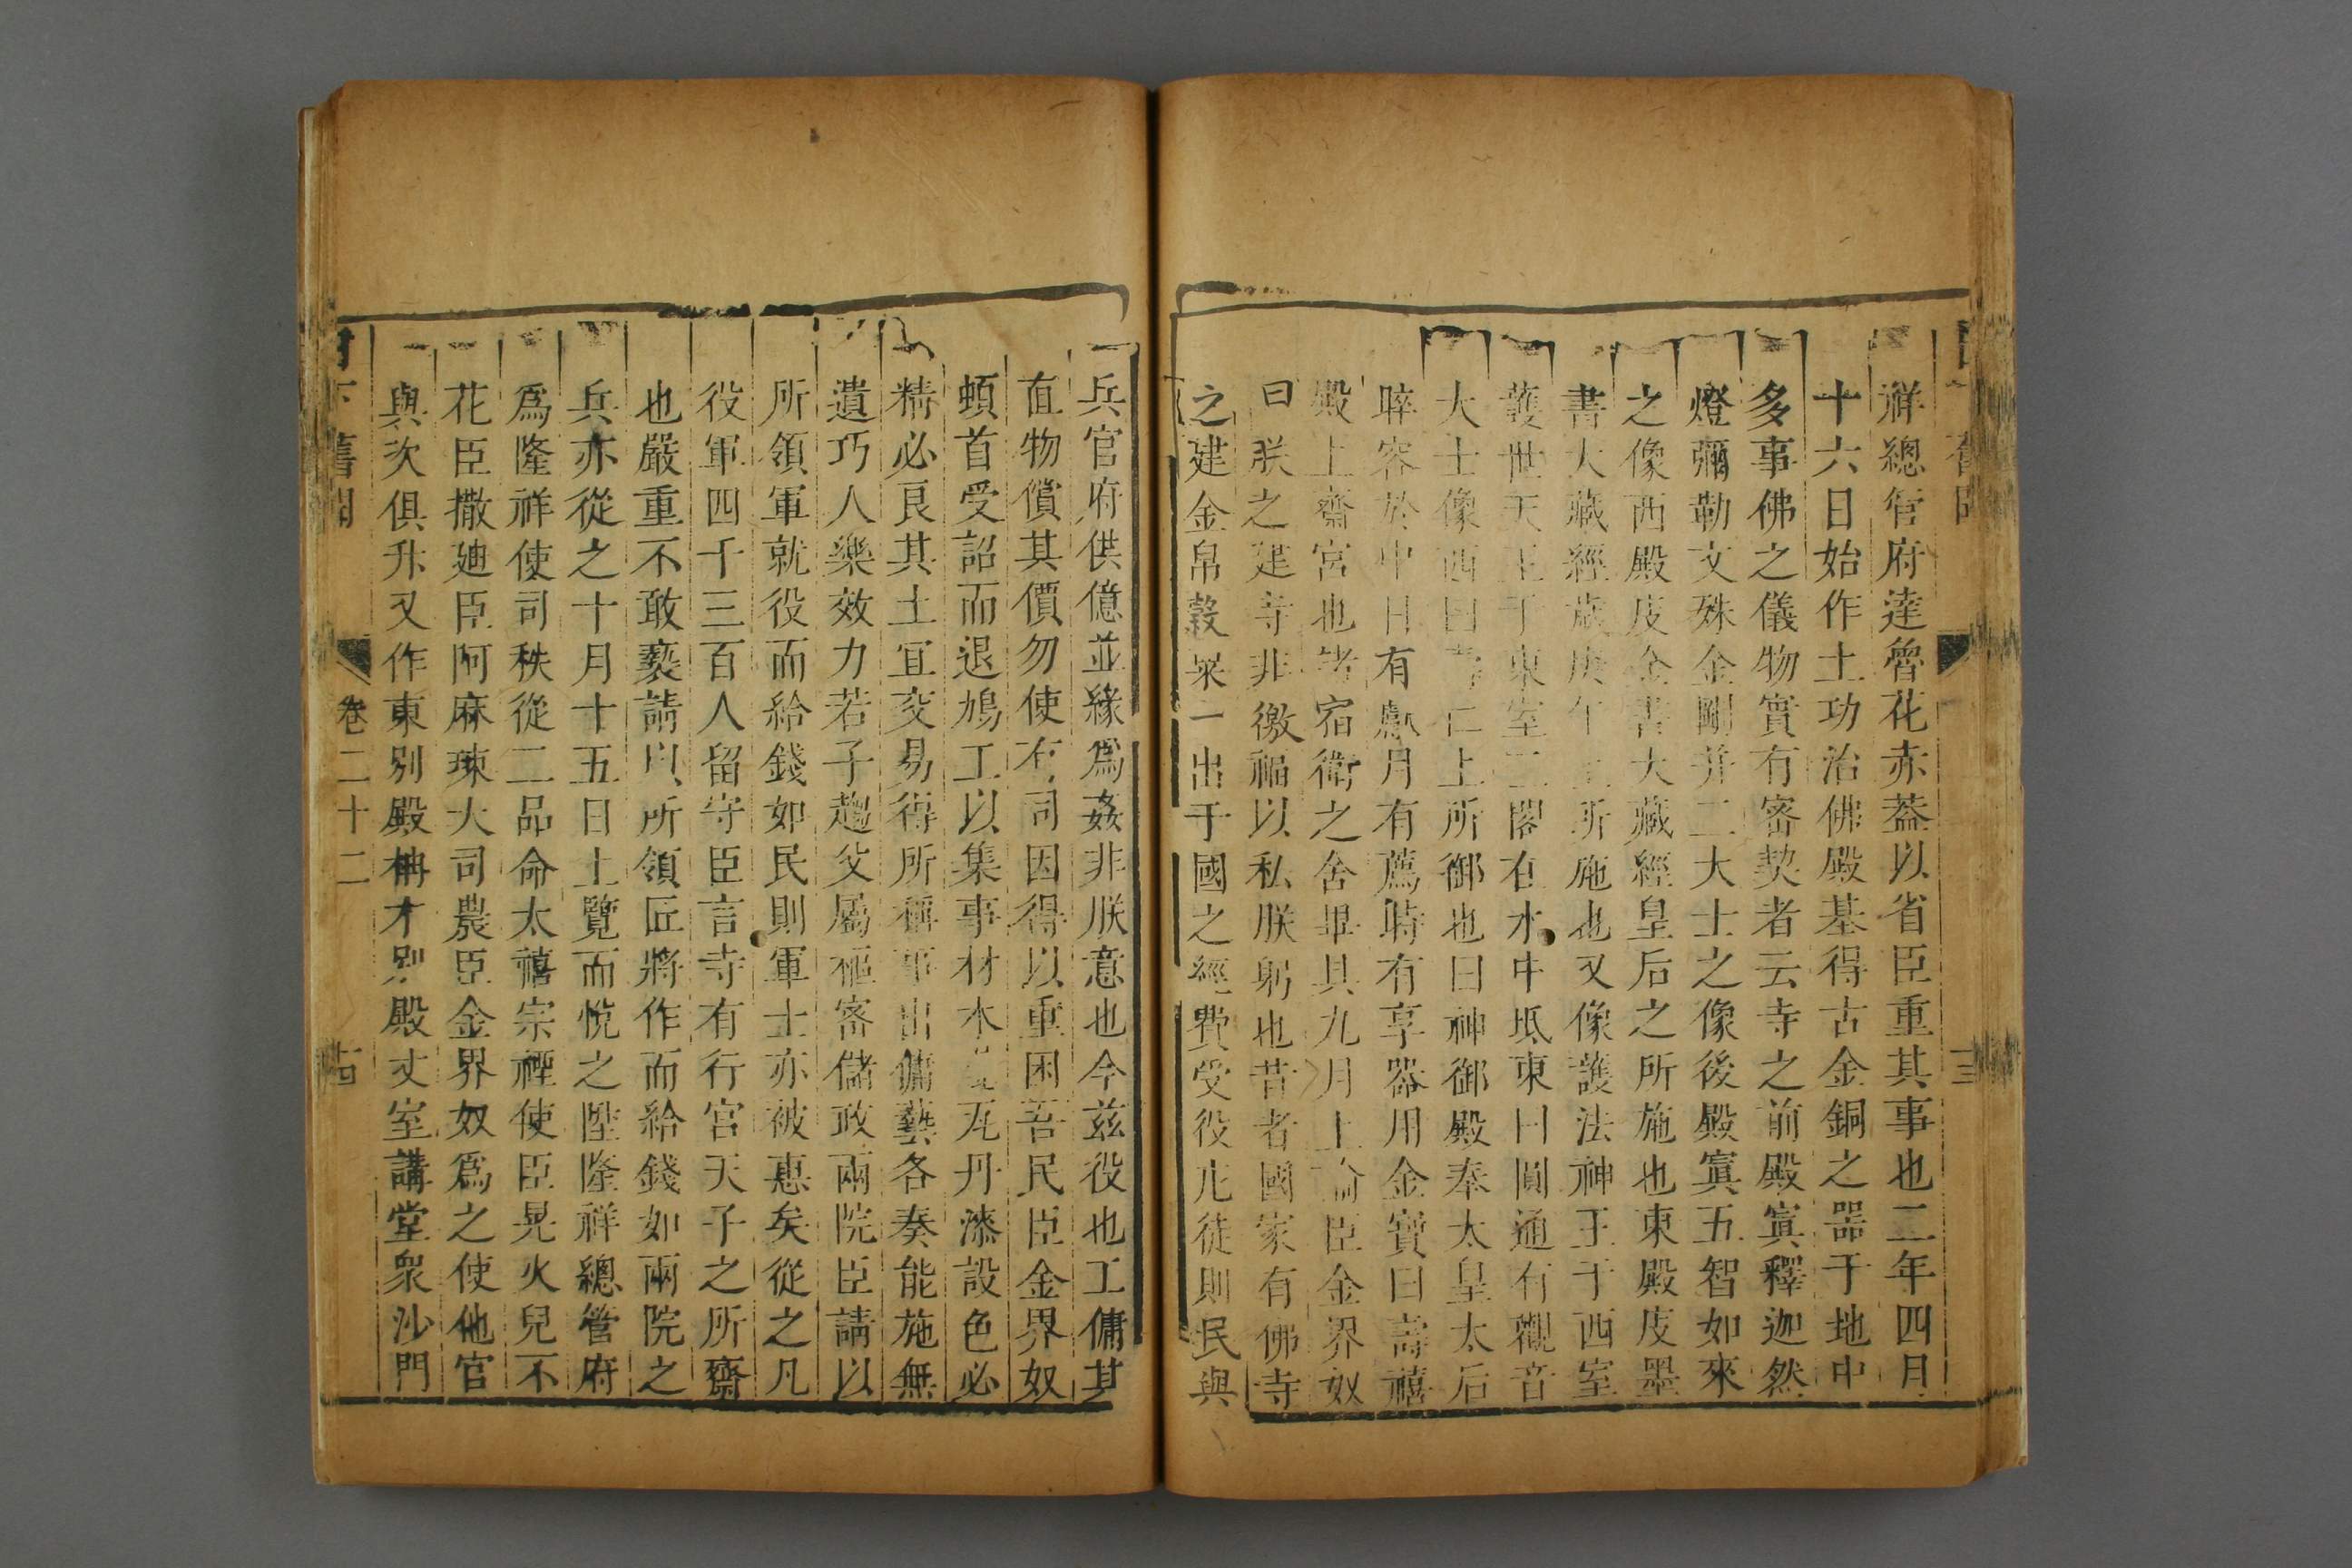 祥總管府達魯花赤葢以省臣重其事也二年四月
十六日始作土功治佛殿基得古金銅之噐于地中
多事佛之儀物實有密契者云寺之前殿寘釋迦然
燈彌勒文殊金剛并二大士之像後殿寘五智如來
之像西殿庋金書大藏經皇后之所施也東殿庋墨
書大藏經歲庚午上所施也又像護法神王于西室
護世天王于東室二閣在水中坻東曰圓通有觀音
大士像西曰壽仁上所御也曰神御殿奉太皇太后
睟容於中日有獻月有薦時有享器用金寶曰壽禧
殿上齋宮也諸宿衛之舍畢具九月上諭臣金界奴
曰朕之建寺非徼福以私朕躬也昔者國家有佛寺
之建金帛穀粟一出于國之經費受役凡徒則民與
兵官府供億並緣爲姦非朕意也今兹役也工傭其
直物償其價勿使有司因得以重困吾民臣金界奴
頓首受詔而退鳩工以集事材木瓦丹漆設色必
精必良其土宜交易得所稱事出傭藝各奏能施無
遺巧人樂效力若子趨父屬樞密儲政兩院臣請以
所領軍就役而給錢如民則軍士亦被惠矣從之凡
役軍四千三百人留守臣言寺有行宮天子之所齋
也嚴重不敢褻請以所領匠將作而給錢如兩院之
兵亦從之十月十五日上覽而悅之陞隆祥總管府
爲隆祥使司秩從二品命太禧宗禋使臣晃火兒不
花臣撒廸臣阿麻㻋大司農臣金界奴爲之使他官
與次俱升又作東别殿柟才别殿丈室講堂衆沙門
下舊聞
卷二十二
十四